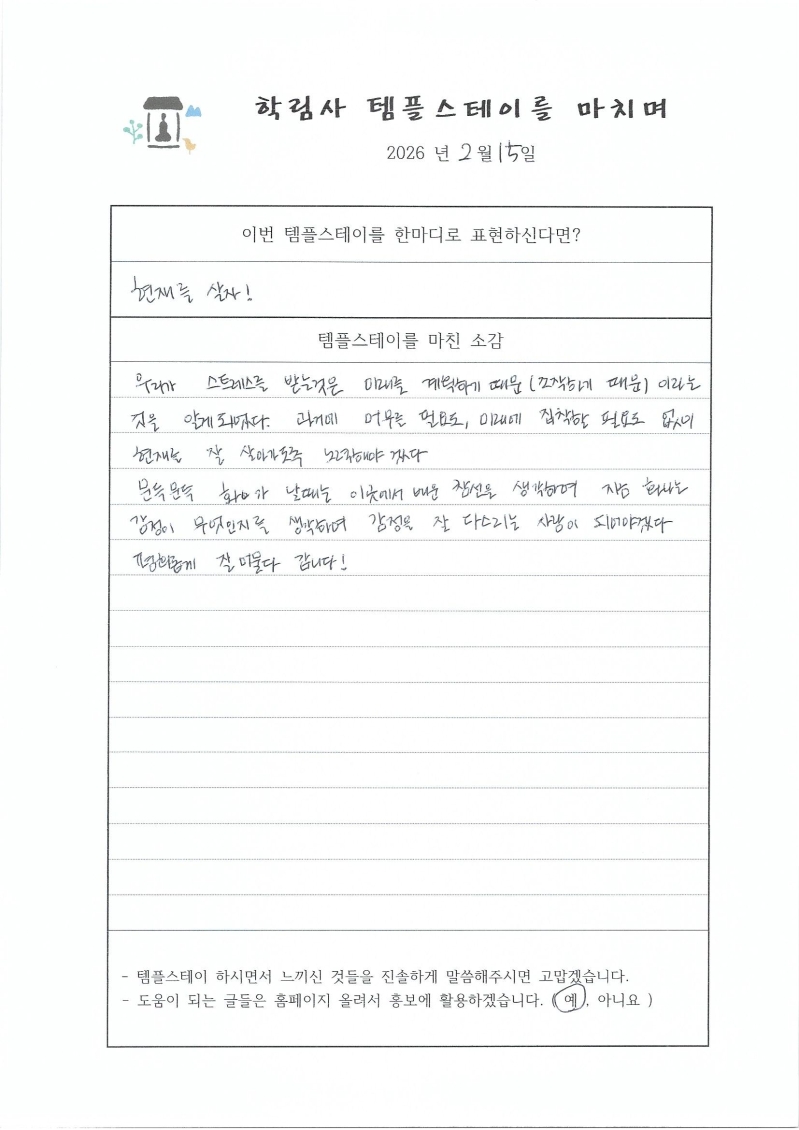 학림사 템플스테이를 마치며
2026 년 2월 15일
이번 템플스테이를 한마디로 표현하신다면?
현재를 살자!
템플스테이를 마친 소감
우리가 스트레스를 받는것은 미래를 계획하기 때문(조작하기 때문)이라는
것을 알게되었다. 과거에 머무를 필요도, 미래에 집착할 필요도 없이
현재를 잘 살아가도록 노력해야 겠다
문득문득 화가 날때는 이곳에서 배운 참선을 생각하며 지금 화나는
감정이 무엇인지를 생각하며 감정을 잘 다스리는 사람이 되어야겠다
평화롭게 잘 머물다 갑니다!
- 템플스테이 하시면서 느끼신 것들을 진솔하게 말씀해주시면 고맙겠습니다.
- 도움이 되는 글들은 홈페이지 올려서 홍보에 활용하겠습니다. ( 예 , 아니요 )